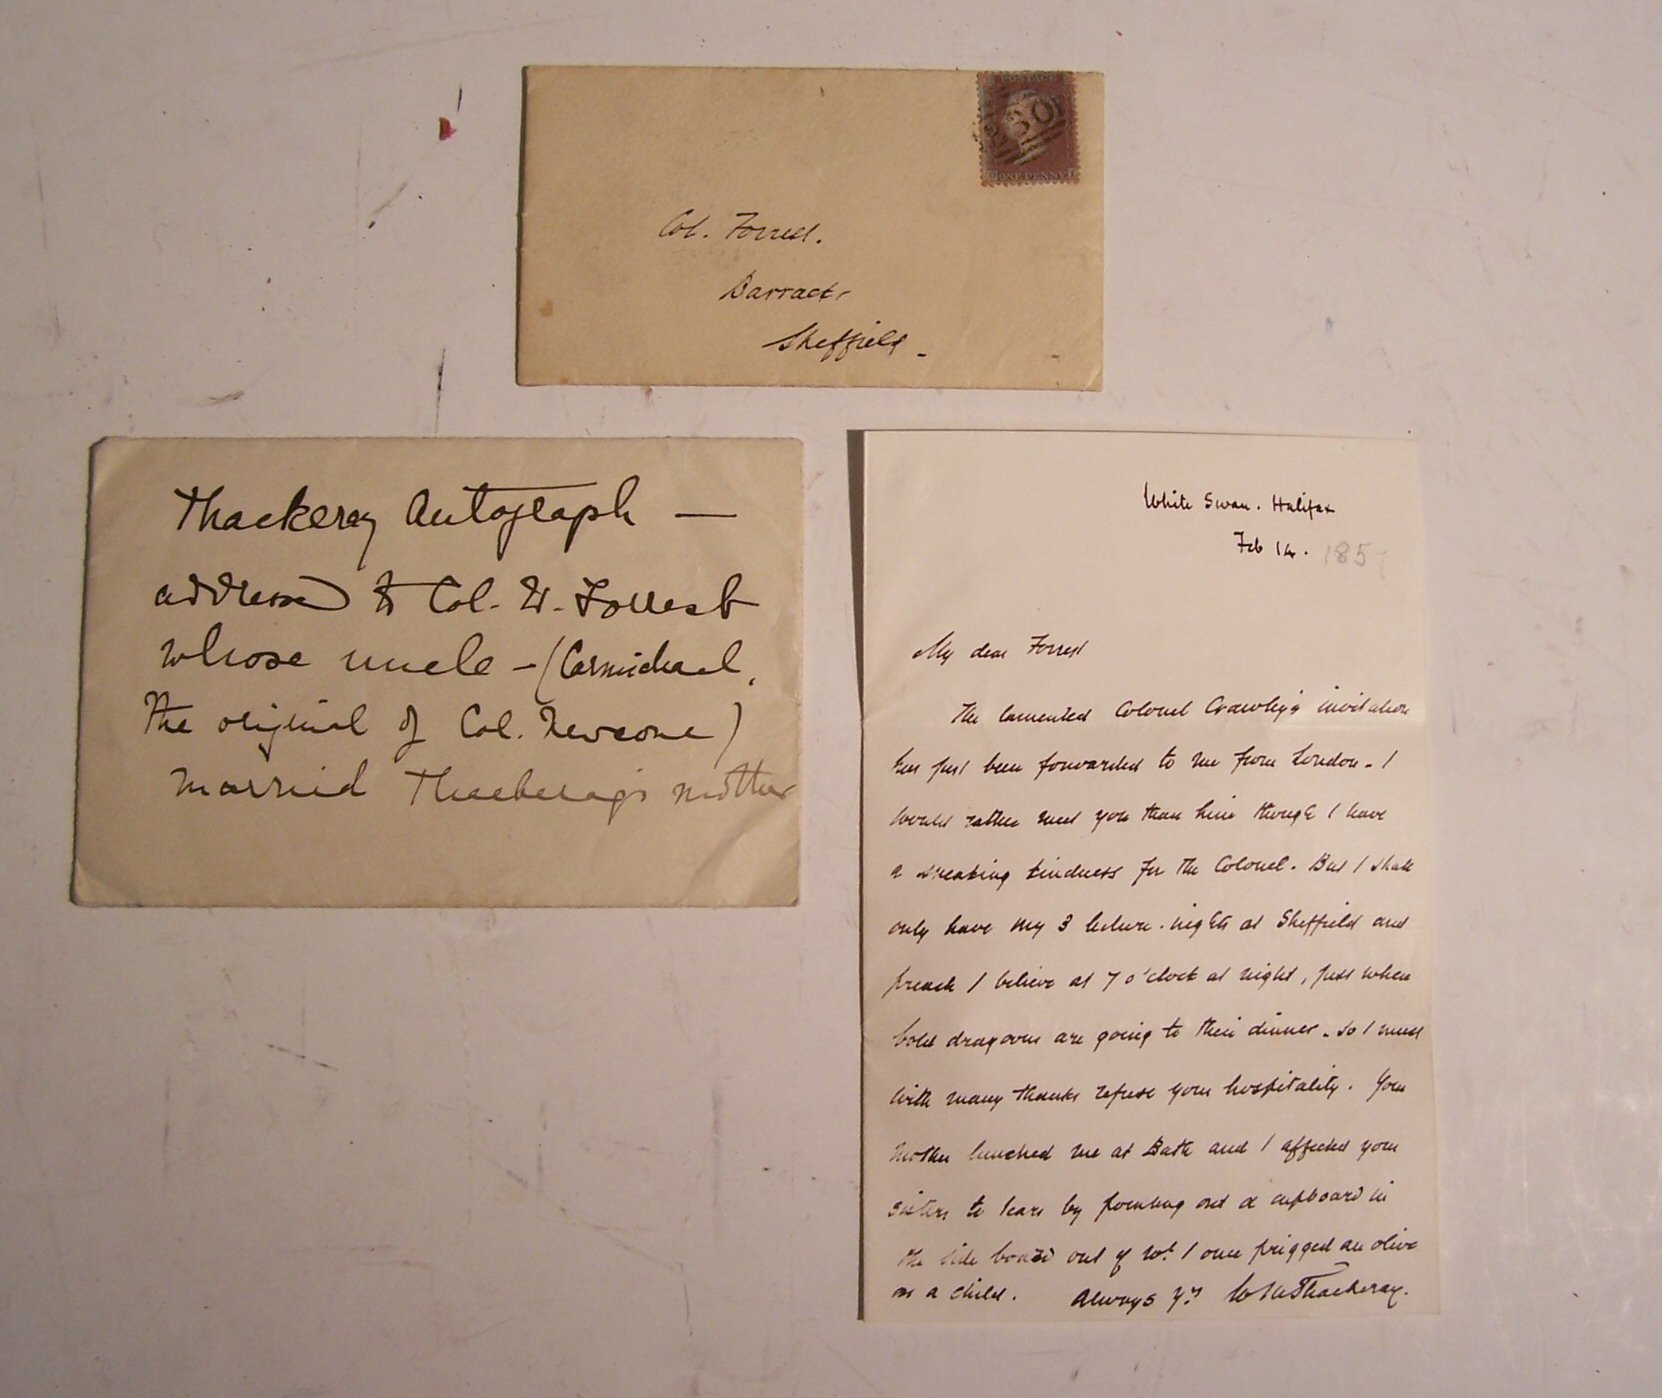 POSTAGE
ONE PENNY
Col. Forrest.
Barracks
Sheffield.
Thackeray Autograph —
addressed to Col. W. Forrest
whose uncle – (Carmichael,
the original of Col. Newcome)
married Thackeray's mother
White Swan. Halifax
Feb 14. 185
My dear Forrest
The lamented Colonel Crawley's invitation
has just been forwarded to me from London. I
would rather meet you than him though I have
a sneaking kindness for the Colonel. But I shall
only have my 3 lecture-nights at Sheffield and
preach I believe at 7 o'clock at night, just when
bold dragoons are going to their dinner. So I must
with many thanks refuse your hospitality. Your
mother lunched me at Bath and I affected your
sisters to tears by pointing out a cupboard in
the side board out of wh. I once prigged an olive
as a child. Always yrs WMThackeray.